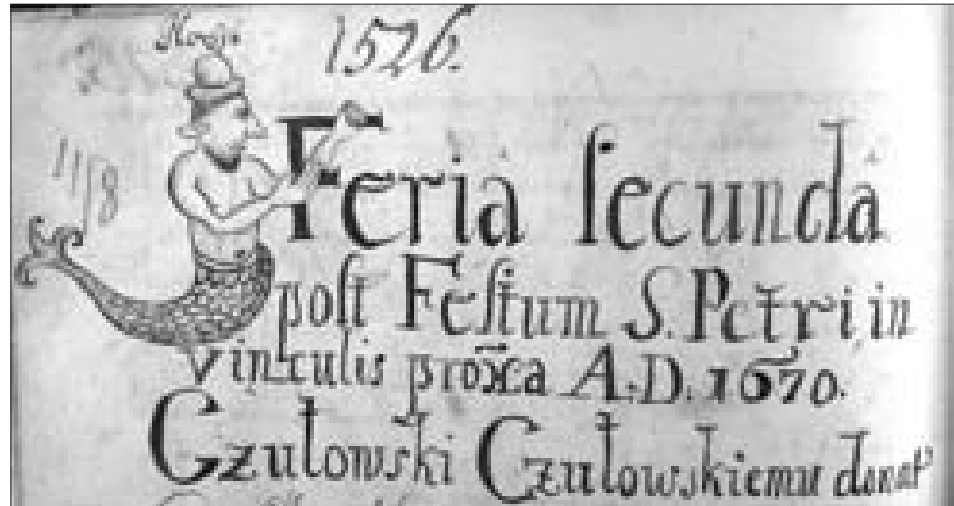 1526.
1118
Feria ſecunda
poſt Feſtum S. Petri in
vinculis proxca A.D. 1670.
Czułowski Czułowskiemu donat